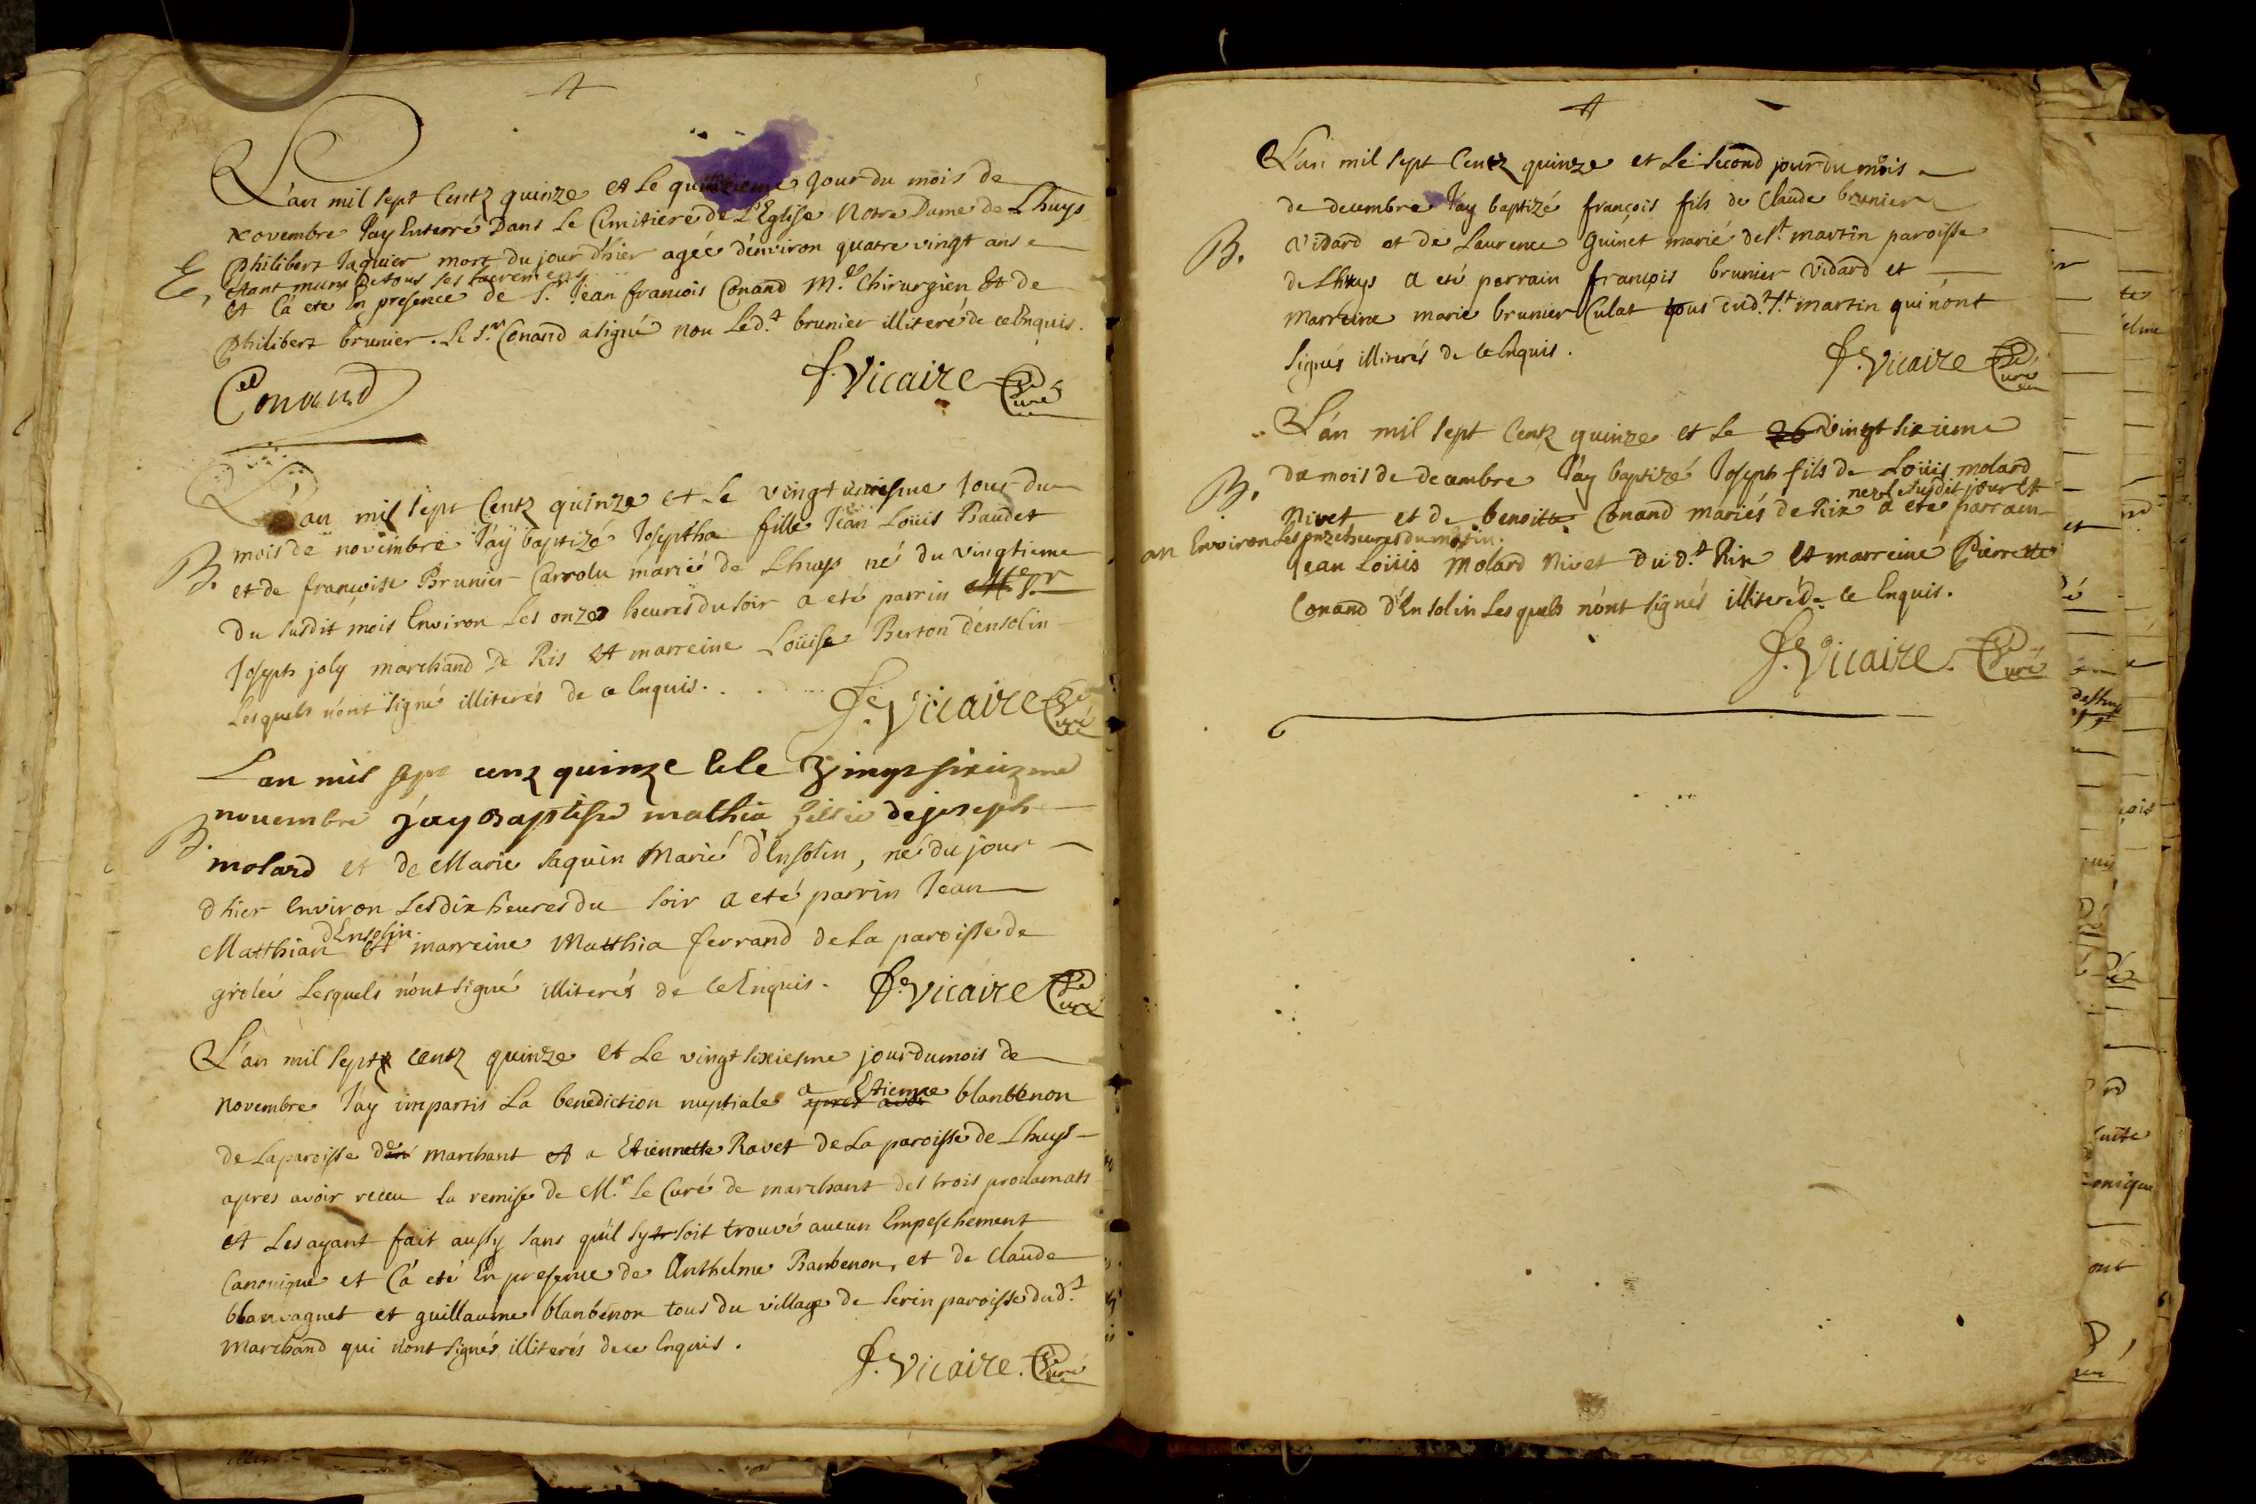 L'an mil sept Centz quinze et Le quinzieme Jour du mois de
Novembre J'ay Enterré Dans Le Cimitiere de L'Eglise Notre Dame de Lhuys
E, Philibert Jaquier mort du jour d'hier agée d'environ quatre vingt ans
Etant muny de tous ses sacremens
et Ca eté En presence de Sr. Jean francois Conand Me. Chirurgien Et de
Philibert brunier. Le Sr. Conand a signé non Led.t brunier illiteré de ce Enquis.
Conand f. Vicaire Curé
L'an mil sept Centz quinze et Le vingt unieme Jour du
B. mois de novembre J'ay baptizé Josephtha fille Jean Louis Baudet
et de francoise Brunier Carrolu marié de Lhuys né du vingtieme
Du susdit mois Environ Les onze heures du soir a eté parrin
Joseph joly marchand de Ris et marreine Louise Berton d'ensolin
Lesquels n'ont signé illiterés de ce Enquis.
Je. Vicaire Curé
L an mil sept cenz quinze le le vingt sixizme
B. novembre jay Baptise mathia fille de joseph
molard et de Marie Jaquin Marié d'Ensolin, né du jour
d'hier Environ Les dix heures du soir a eté parrin Jean
d'Ensolin.
Matthian et marreine Matthia ferrand de La paroisse de
grolée Lesquels n'ont signé illiterés de ce Enquis. Je. Vicaire Curé
L'an mil sept centz quinze et Le vingt sixiesme jour du mois de
a Etienne
novembre J'ay impartis La benediction nuptiale apres avoir blanbenon
de La paroisse de marchant et a Etiennette Ravet de La paroisse de Lhuys
apres avoir receu La remise de Mr. Le Curé de marchant des trois proclamats
et Les ayant fait aussy sans qu'il sy soit trouvé aucun Empeschement
Canonique et Ca eté En presence de Anthelme Banbenon, et de Claude
blanvagnet et guillaume blanbenon tous du village de Serin paroisse dud.t
marchand qui n'ont signés illiterés de ce Enquis.
f. Vicaire. Curé
L'an mil sept Centz quinze et Le second jour du mois
de decembre J'ay baptizé françois fils de Claude brunier
B. Vidard et de Laurence Guinet marié de St. martin paroisse
de Lhuys a eté parrain françois brunier Vidard et
marreine marie brunier Culat tous dud.t St. martin qui n'ont
signés illiterés de ce Enquis.
f. Vicaire Curé
L'an mil sept Centz quinze et Le 26 vingt sixieme
B. du mois de decembre J'ay baptizé Joseph fils de Loüis molard
nez le susdit jour et
Nivet et de benoitte Conand mariés de Rix a eté parrain
an Environ Les onze heures du matin.
Jean Loüis Molard Nivet Du d.t Rix et marreine Pierrette
Conand d'Ensolin Lesquels n'ont signés illiteré de ce Enquis.
Je. Vicaire. Curé